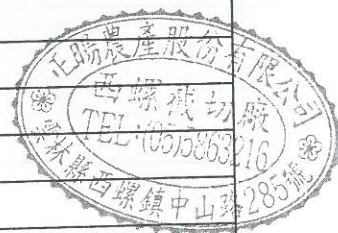 正暘農產股份有限公司
西螺截切廠
TEL:(05)5863216
雲林縣西螺鎮中山路285號